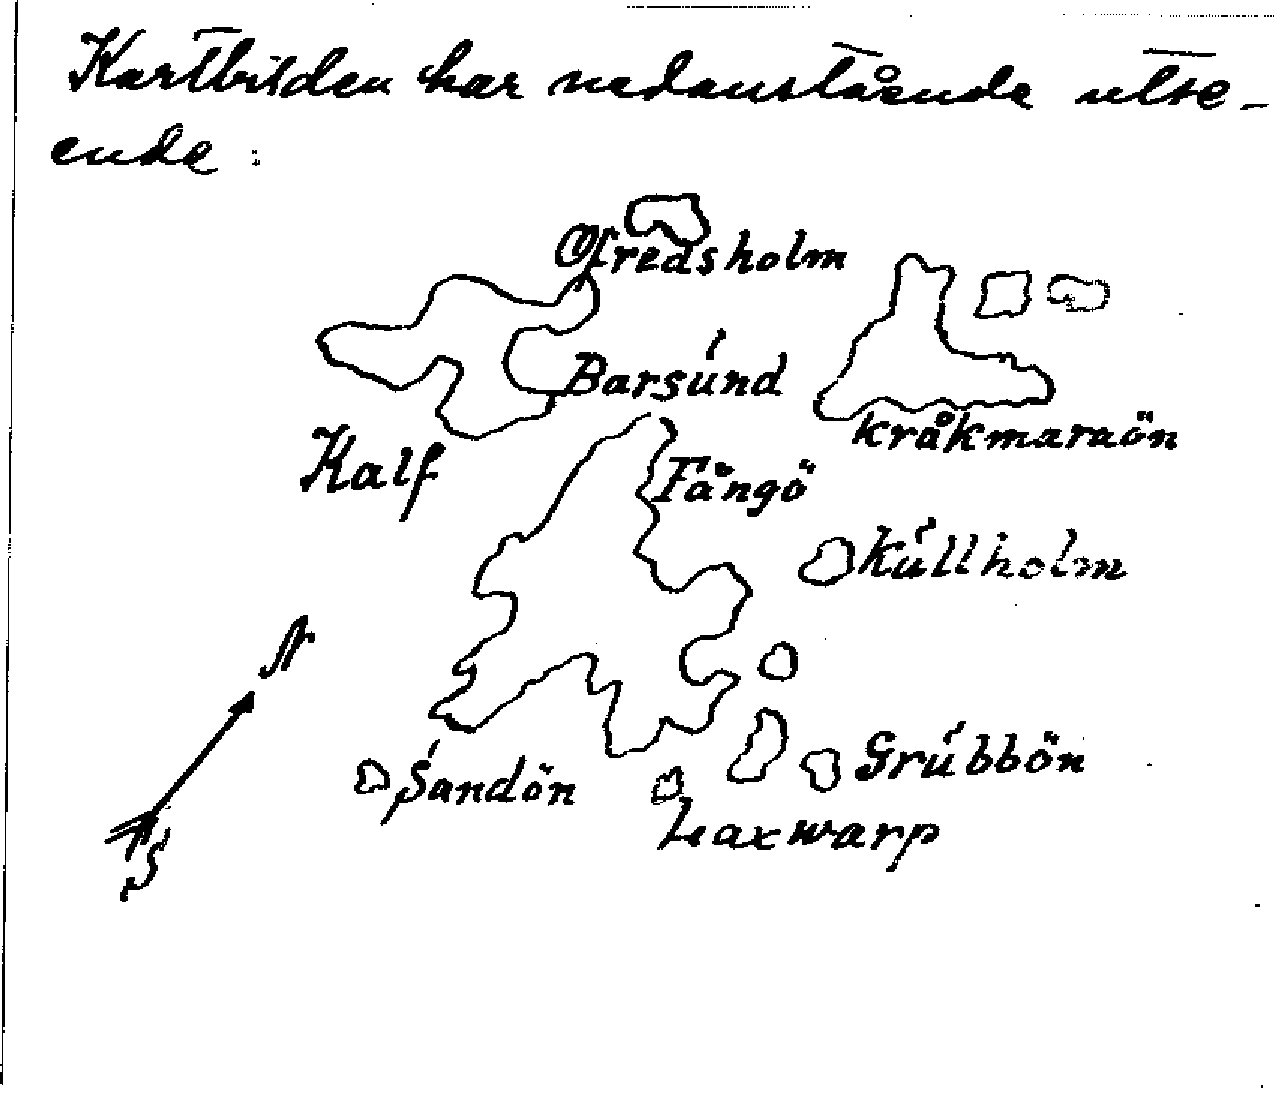 Kartbilden har nedanstående utse-
ende :
Ofredsholm
Barsúnd
kråkmaraön
Kalf
Fångö
Kúllholm
N
Grúbbön
Sandön
Laxwarp
S